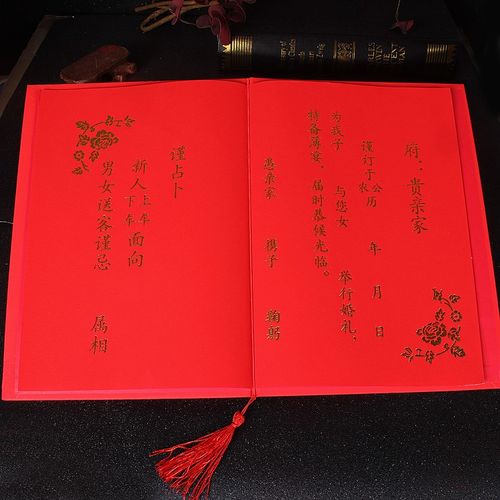 府：贵亲家
谨订于 公农历 年 月 日
为我子 与您女 举行婚礼，
特备薄宴，届时恭候光临。
愚亲家 携子 鞠躬
谨占卜
新人上午下午面向
男女送客谨忌 属相